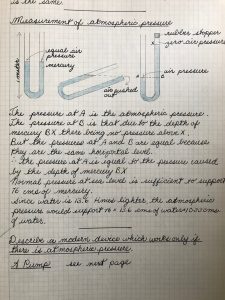 is the same.
Measurement of atmospheric pressure
rubber stopper
zero air pressure
equal air
pressure
mercury
1 metre
air pressure
air pushed
out
X
A
B
The pressure at A is the atmospheric pressure.
The pressure at B is that due to the depth of
mercury BX there being no pressure above X.
But the pressures at A and B are equal because
they are the same horizontal level.
∴ The pressure at A is equal to the pressure caused
by the depth of mercury BX
Normal pressure at sea level is sufficient to support
76 cms of mercury.
Since water is 13.6 times lighter the atmospheric
pressure would support 76 × 13.6 cms of water
of water.
Describe a modern device which works only if
there is atmospheric pressure.
A Pump see next page